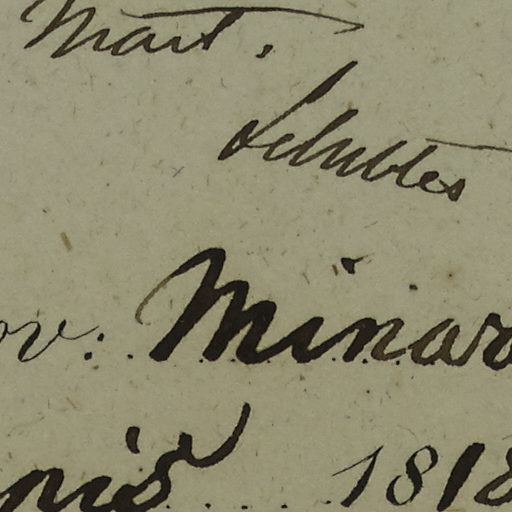 Mart.
Schultes
ov. Minar
nis 1818